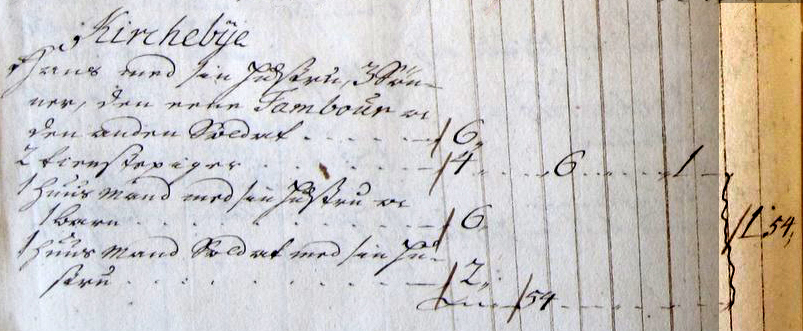 Kirchebÿe
Hans med sin Hustru, 3 Søn-
ner, den eene Tambour og
den anden Soldat . . . . 6„
2 tienstepiger . . . . 4 . . 6 . . . 1
1 Huus Mand med sin Hustru og
1 barn . . . . . . 6
1 Huus Mand Soldat med sin Hu-
stru . . . . . . 2„
54
1„ 54„